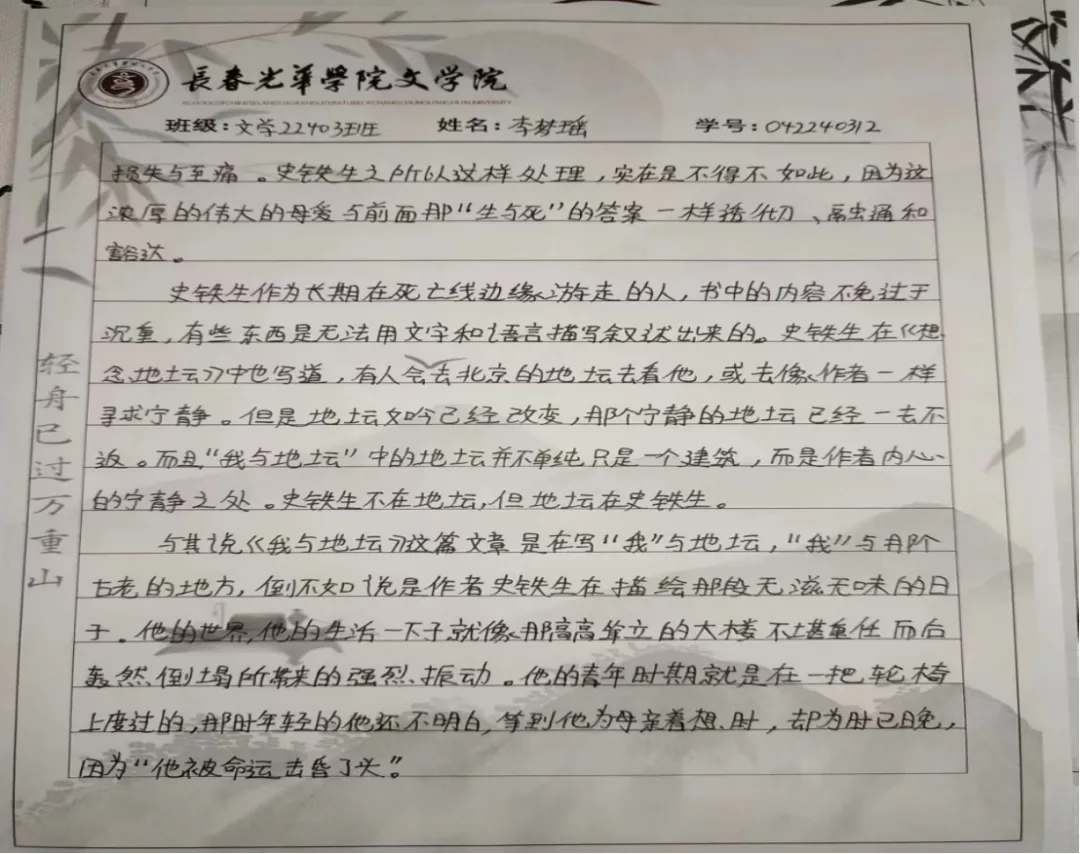 長春光華學院文学院
班级：文学22403班
姓名：李梦瑶
学号：042240312
损失与至痛。史铁生之所以这样处理，实在是不得不如此，因为这
浓厚的伟大的母爱与前面那“生与死”的答案一样透彻、融通和
豁达。
史铁生作为长期在死亡线边缘游走的人，书中的内容不免过于
沉重，有些东西是无法用文字和语言描写叙述出来的。史铁生在《想
念地坛》中也写道，有人会去北京的地坛去看他，或去像作者一样
寻求宁静。但是地坛如今已经改变，那个宁静的地坛已经一去不
返。而且“我与地坛”中的地坛并不单纯只是一个建筑，而是作者内心
的宁静之处。史铁生不在地坛，但地坛在史铁生。
与其说《我与地坛》这篇文章是在写“我”与地坛，“我”与那个
古老的地方，倒不如说是作者史铁生在描绘那段无滋无味的日
子。他的世界，他的生活一下子就像那高高耸立的大楼不堪重任而后
轰然倒塌所带来的强烈振动。他的青年时期就是在一把轮椅
上度过的，那时年轻的他还不明白，等到他为母亲着想时，却为时已晚，
因为“他被命运击昏了头”。
轻舟已过万重山